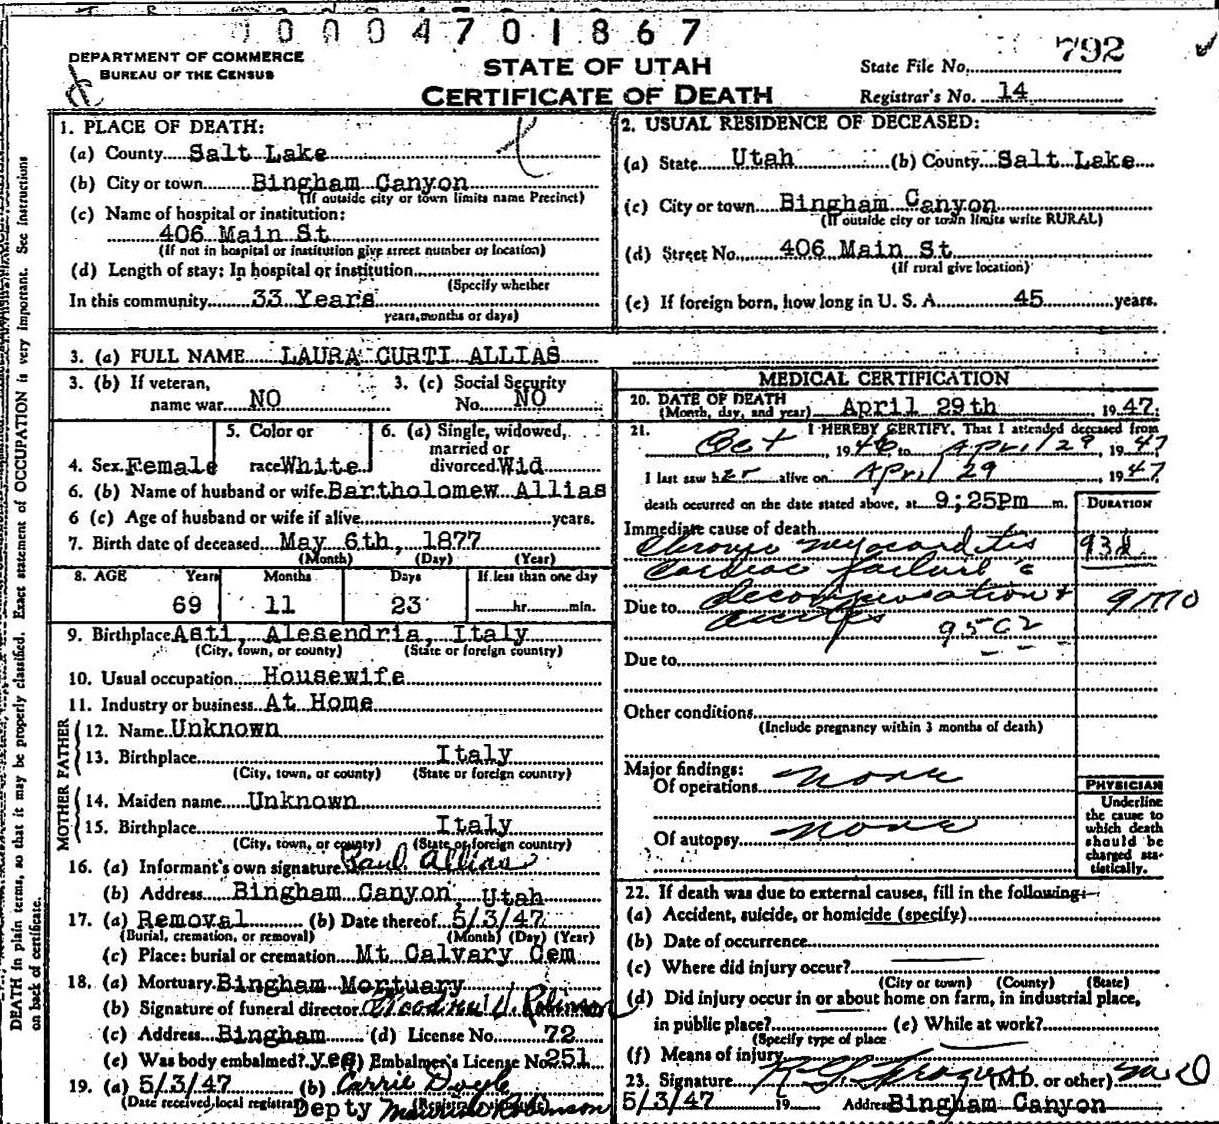 00004701867
DEPARTMENT OF COMMERCE
BUREAU OF THE CENSUS
STATE OF UTAH
CERTIFICATE OF DEATH
State File No. 792
Registrar's No. 14
DEATH in plain terms, so that it may be properly classified. Exact statement of OCCUPATION is very important. See instructions
on back of certificate.
1. PLACE OF DEATH:
(a) County Salt Lake
(b) City or town Bingham Canyon
(If outside city or town limits name Precinct)
(c) Name of hospital or institution:
406 Main St
(If not in hospital or institution give street number or location)
(d) Length of stay: In hospital or institution
(Specify whether
In this community 33 Years
years, months or days)
2. USUAL RESIDENCE OF DECEASED:
(a) State Utah (b) County Salt Lake
(c) City or town Bingham Canyon
(If outside city or town limits write RURAL)
(d) Street No. 406 Main St
(If rural give location)
(e) If foreign born, how long in U. S. A. 45 years.
3. (a) FULL NAME LAURA CURTI ALLIAS
3. (b) If veteran, name war NO
3. (c) Social Security No. NO
4. Sex Female
5. Color or race White
6. (a) Single, widowed, married or divorced Wid
6. (b) Name of husband or wife Bartholomew Allias
6 (c) Age of husband or wife if alive years.
7. Birth date of deceased May 6th, 1877
(Month) (Day) (Year)
8. AGE Years Months Days If less than one day
69 11 23 hr. min.
9. Birthplace Asti, Alesendria, Italy
(City, town, or county) (State or foreign country)
10. Usual occupation Housewife
11. Industry or business At Home
FATHER
12. Name Unknown
13. Birthplace Italy
(City, town, or county) (State or foreign country)
MOTHER
14. Maiden name Unknown
15. Birthplace Italy
(City, town, or county) (State or foreign country)
16. (a) Informant's own signature Paul Allias
(b) Address Bingham Canyon, Utah
17. (a) Removal (b) Date thereof 5/3/47
(Burial, cremation, or removal) (Month) (Day) (Year)
(c) Place: burial or cremation Mt Calvary Cem
18. (a) Mortuary Bingham Mortuary
(b) Signature of funeral director
(c) Address Bingham (d) License No. 72
(e) Was body embalmed? yes Embalmer's License No. 251
19. (a) 5/3/47 (b) Carrie Doyle
(Date received local registrar)
Depty Robinson
MEDICAL CERTIFICATION
20. DATE OF DEATH
(Month, day, and year) April 29th 1947.
21. I HEREBY CERTIFY, That I attended deceased from
Oct 1946 to April 29, 1947
I last saw her alive on April 29, 1947
death occurred on the date stated above, at 9;25Pm m. DURATION
Immediate cause of death
Chronic myocarditis 93d
Cardiac failure c
Due to decompensation + 9 mo
ascites 95C2
Due to
Other conditions
(Include pregnancy within 3 months of death)
Major findings:
Of operations none
Of autopsy none
PHYSICIAN
Underline
the cause to
which death
should be
charged sta-
tistically.
22. If death was due to external causes, fill in the following:
(a) Accident, suicide, or homicide (specify)
(b) Date of occurrence
(c) Where did injury occur?
(City or town) (County) (State)
(d) Did injury occur in or about home on farm, in industrial place,
in public place? (e) While at work?
(Specify type of place
(f) Means of injury
23. Signature (M.D. or other) M D
5/3/47 19 Address Bingham Canyon